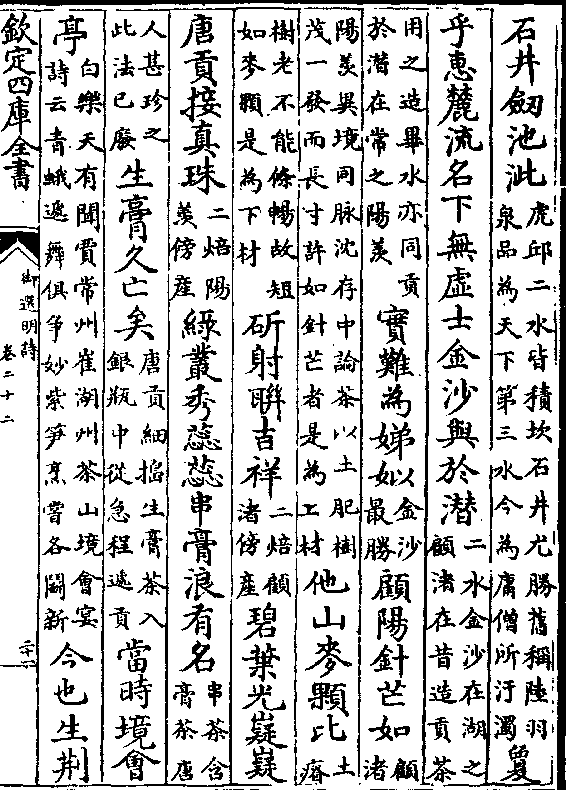 石井劔池泚虎邱二水皆積坎石井尤勝舊稱陸羽泉品為天下第三水今為庸僧所汙濁夐
乎惠麓流名下無虚士金沙與於潜二水金沙在湖之顧渚在昔造貢茶
用之造畢水亦同貢於潜在常之陽羨實難為娣姒以金沙最勝顧陽針芒如顧渚
陽羨異境同脉沈存中論茶以土肥樹茂一發而長寸許如針芒者是為上材他山麥顆比土瘠
樹老不能條暢故短如麥顆是為下材斫射聨吉祥二焙顧渚傍産碧葉光嶷嶷
唐貢接真珠二焙陽羨傍産緑叢秀蕊蕊串膏浪有名串茶含膏茶唐
人甚珍之此法已廢生膏久亡矣唐貢細搗生膏茶入銀瓶中從急程遞貢當時境會
亭白樂天有聞賈常州崔湖州茶山境會宴詩云青蛾遞舞俱争妙紫笋烹嘗各鬭新今也生荆
欽定四庫全書
御選明詩
卷二十二